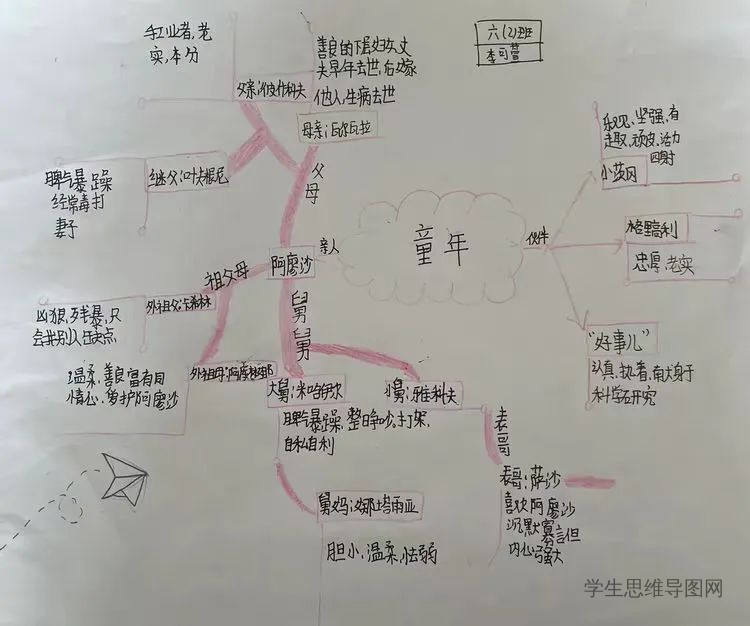 六(2)班
李可萱
手工业者,老
实,本分
善良的下层妇女丈
夫早年去世,后嫁
他人,生病去世
母亲:瓦尔瓦拉
继父:叶夫根尼
脾气暴躁
经常毒打
妻子
父母
祖父母
阿廖沙
亲人
童年
伙伴
乐观、坚强,有
趣,顽皮,活力
四射
小茨冈
格里高利
忠厚,老实
"好事儿"
认真,执着,献身于
科学研究
外祖父:卡希林
凶狠,残暴,只
会抓别人缺点
外祖母:阿库林娜
温柔、善良富有同
情心,爱护阿廖沙
舅舅
大舅:米哈伊尔
脾气暴躁,整日争吵、打架,
自私自利
舅妈:娜塔丽亚
胆小,温柔,怯弱
小舅:雅科夫
表哥
表哥:萨沙
喜欢阿廖沙
沉默寡言但
内心强大
学生思维导图网